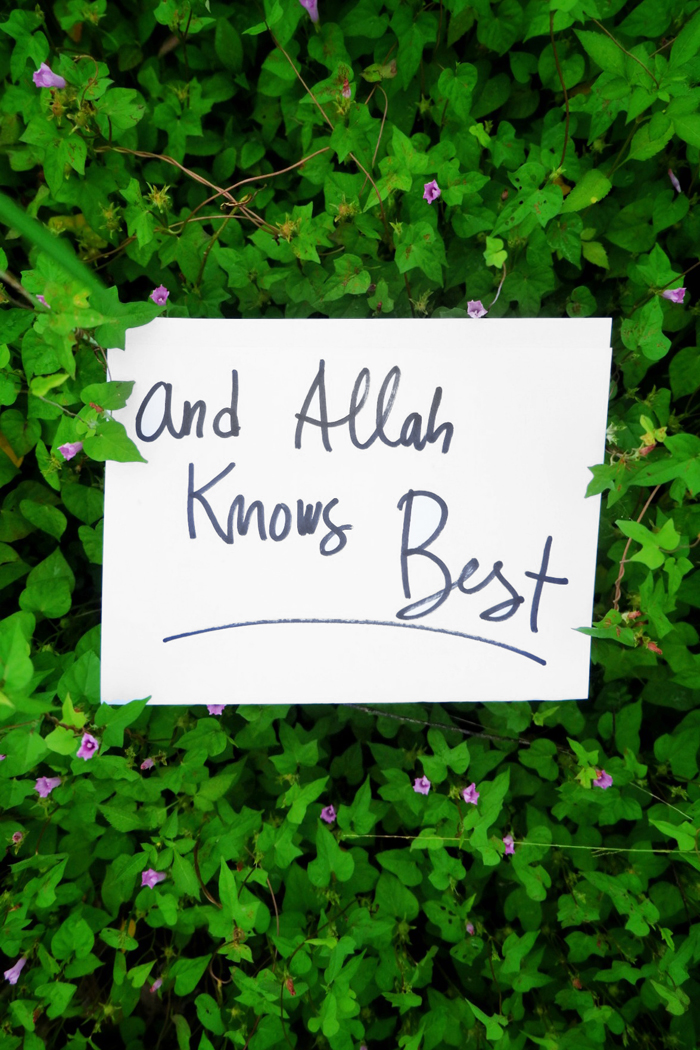 and Allah
Knows Best